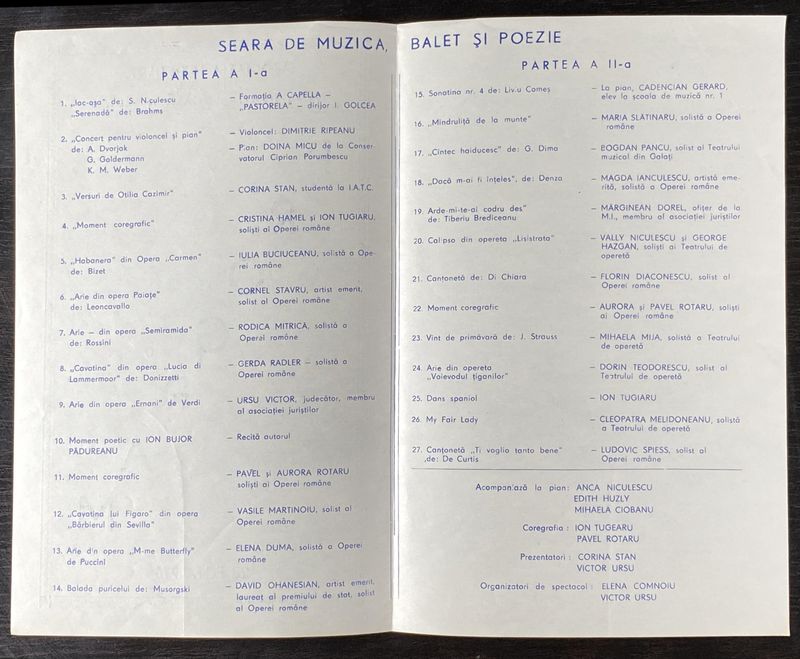 SEARA DE MUZICA, BALET ȘI POEZIE
PARTEA A I-a
1. „Iac-așa" de: S. Niculescu
„Serenadă" de: Brahms
— Formația A CAPELLA —
„PASTORELA" — dirijor I. GOLCEA
2. „Concert pentru violoncel și pian"
de: A. Dvorjak
G. Goldermann
K. M. Weber
— Violoncel: DIMITRIE RIPEANU
— Pian: DOINA MICU de la Conser-
vatorul Ciprian Porumbescu
3. „Versuri de Otilia Cazimir"
— CORINA STAN, studentă la I.A.T.C.
4. „Moment coregrafic"
— CRISTINA HAMEL și ION TUGIARU,
soliști al Operei romîne
5. „Habanera" din Opera „Carmen"
de: Bizet
— IULIA BUCIUCEANU, solistă a Ope-
rei române
6. „Arie din opera Paiațe"
de: Leoncavallo
— CORNEL STAVRU, artist emerit,
solist al Operei române
7. Arie — din opera „Semiramida"
de: Rossini
— RODICA MITRICĂ, solistă a
Operei române
8. „Cavatina" din opera „Lucia di
Lammermoor" de: Donizzetti
— GERDA RADLER — solistă a
Operei române
9. Arie din opera „Ernani" de Verdi
— URSU VICTOR, judecător, membru
al asociației juriștilor
10. Moment poetic cu ION BUJOR
PĂDUREANU
— Recită autorul
11. Moment coregrafic
— PAVEL și AURORA ROTARU
soliști ai Operei române
12. „Cavatina lui Figaro" din opera
„Bărbierul din Sevilla"
— VASILE MARTINOIU, solist al
Operei române
13. Arie din opera „M-me Butterfly"
de Puccini
— ELENA DUMA, solistă a Operei
române
14. Balada puricelui de: Musorgski
— DAVID OHANESIAN, artist emerit,
laureat al premiului de stat, solist
al Operei române
PARTEA A II-a
15. Sonatina nr. 4 de: Liviu Comes
— La pian, CADENCIAN GERARD,
elev la școala de muzică nr. 1
16. „Mindruliță de la munte"
— MARIA SLĂTINARU, solistă a Operei
române
17. „Cintec haiducesc" de: G. Dima
— BOGDAN PANCU, solist al Teatrului
muzical din Galați
18. „Dacă m-ai fi înțeles", de: Denza
— MAGDA IANCULESCU, artistă eme-
rită, solistă a Operei române
19. Arde-mi-te-ai codru des"
de: Tiberiu Brediceanu
— MĂRGINEAN DOREL, ofițer de la
M.I., membru al asociației juriștilor
20. Calipso din opereta „Lisistrata"
— VALLY NICULESCU și GEORGE
HAZGAN, soliști ai Teatrului de
operetă
21. Cantonetă de: Di Chiara
— FLORIN DIACONESCU, solist al
Operei române
22. Moment coregrafic
— AURORA și PAVEL ROTARU, soliști
ai Operei române
23. Vint de primăvară de: J. Strauss
— MIHAELA MIJA, solistă a Teatrului
de operetă
24. Arie din opereta
„Voievodul țiganilor"
— DORIN TEODORESCU, solist al
Teatrului de operetă
25. Dans spaniol
— ION TUGIARU
26. My Fair Lady
— CLEOPATRA MELIDONEANU, solistă
a Teatrului de operetă
27. Canțonetă „Ti voglio tanto bene"
de: De Curtis
— LUDOVIC SPIESS, solist al
Operei române
Acompaniază la pian: ANCA NICULESCU
EDITH HUZLY
MIHAELA CIOBANU
Coregrafia: ION TUGEARU
PAVEL ROTARU
Prezentatori: CORINA STAN
VICTOR URSU
Organizatori de spectacol: ELENA COMNOIU
VICTOR URSU